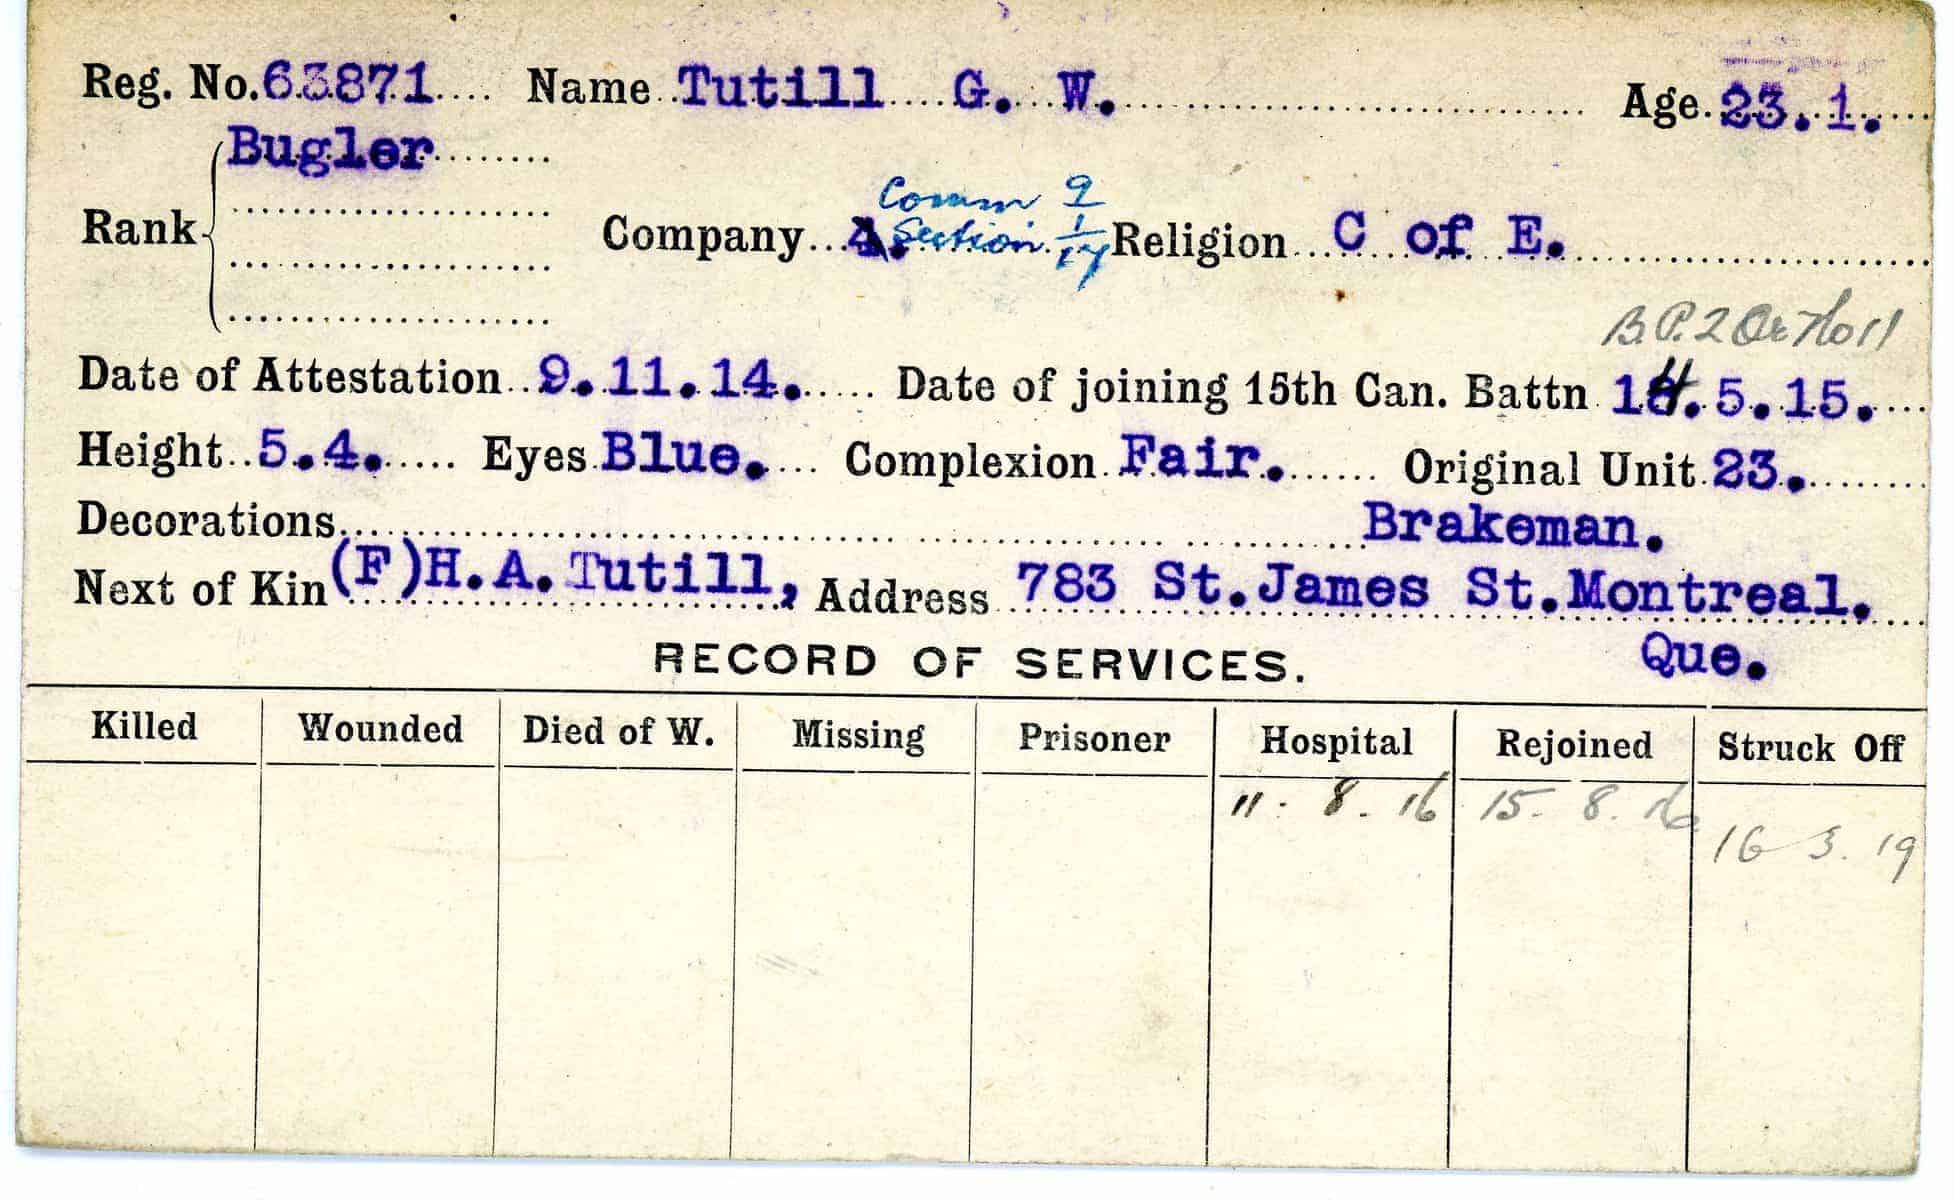 Reg. No. 63871 Name Tutill G. W. Age 23.1.
Bugler
Comm 9
Rank Company A. Section 1/17 Religion C of E.
B.P.2
Date of Attestation 9.11.14. Date of joining 15th Can. Battn 11.5.15.
Height 5.4. Eyes Blue. Complexion Fair. Original Unit 23.
Decorations Brakeman.
Next of Kin (F) H.A. Tutill, Address 783 St. James St. Montreal.
RECORD OF SERVICES. Que.
Killed Wounded Died of W. Missing Prisoner Hospital Rejoined Struck Off
11. 8. 16 15. 8. 16
16 3. 19